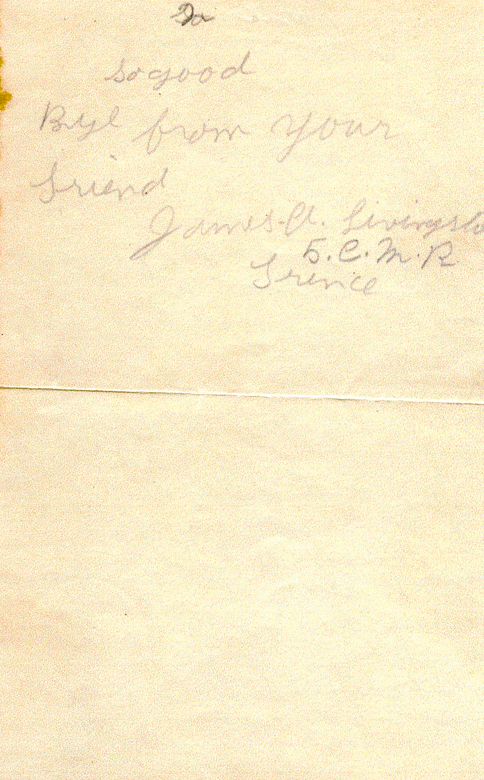 so good
Bye from your
friend
James. A. Livingsto
5. C. M. R